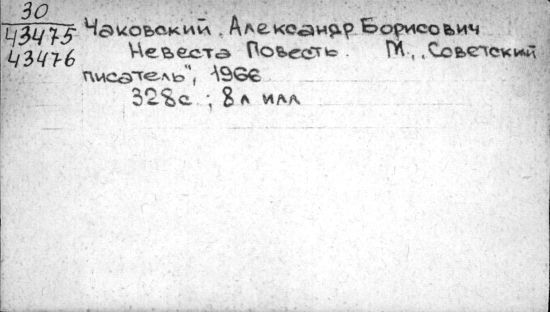 30
43475 Чаковский, Александр Борисович
43476 Невеста Повесть. М., „Советский
писатель", 1966
328с.; 8л илл